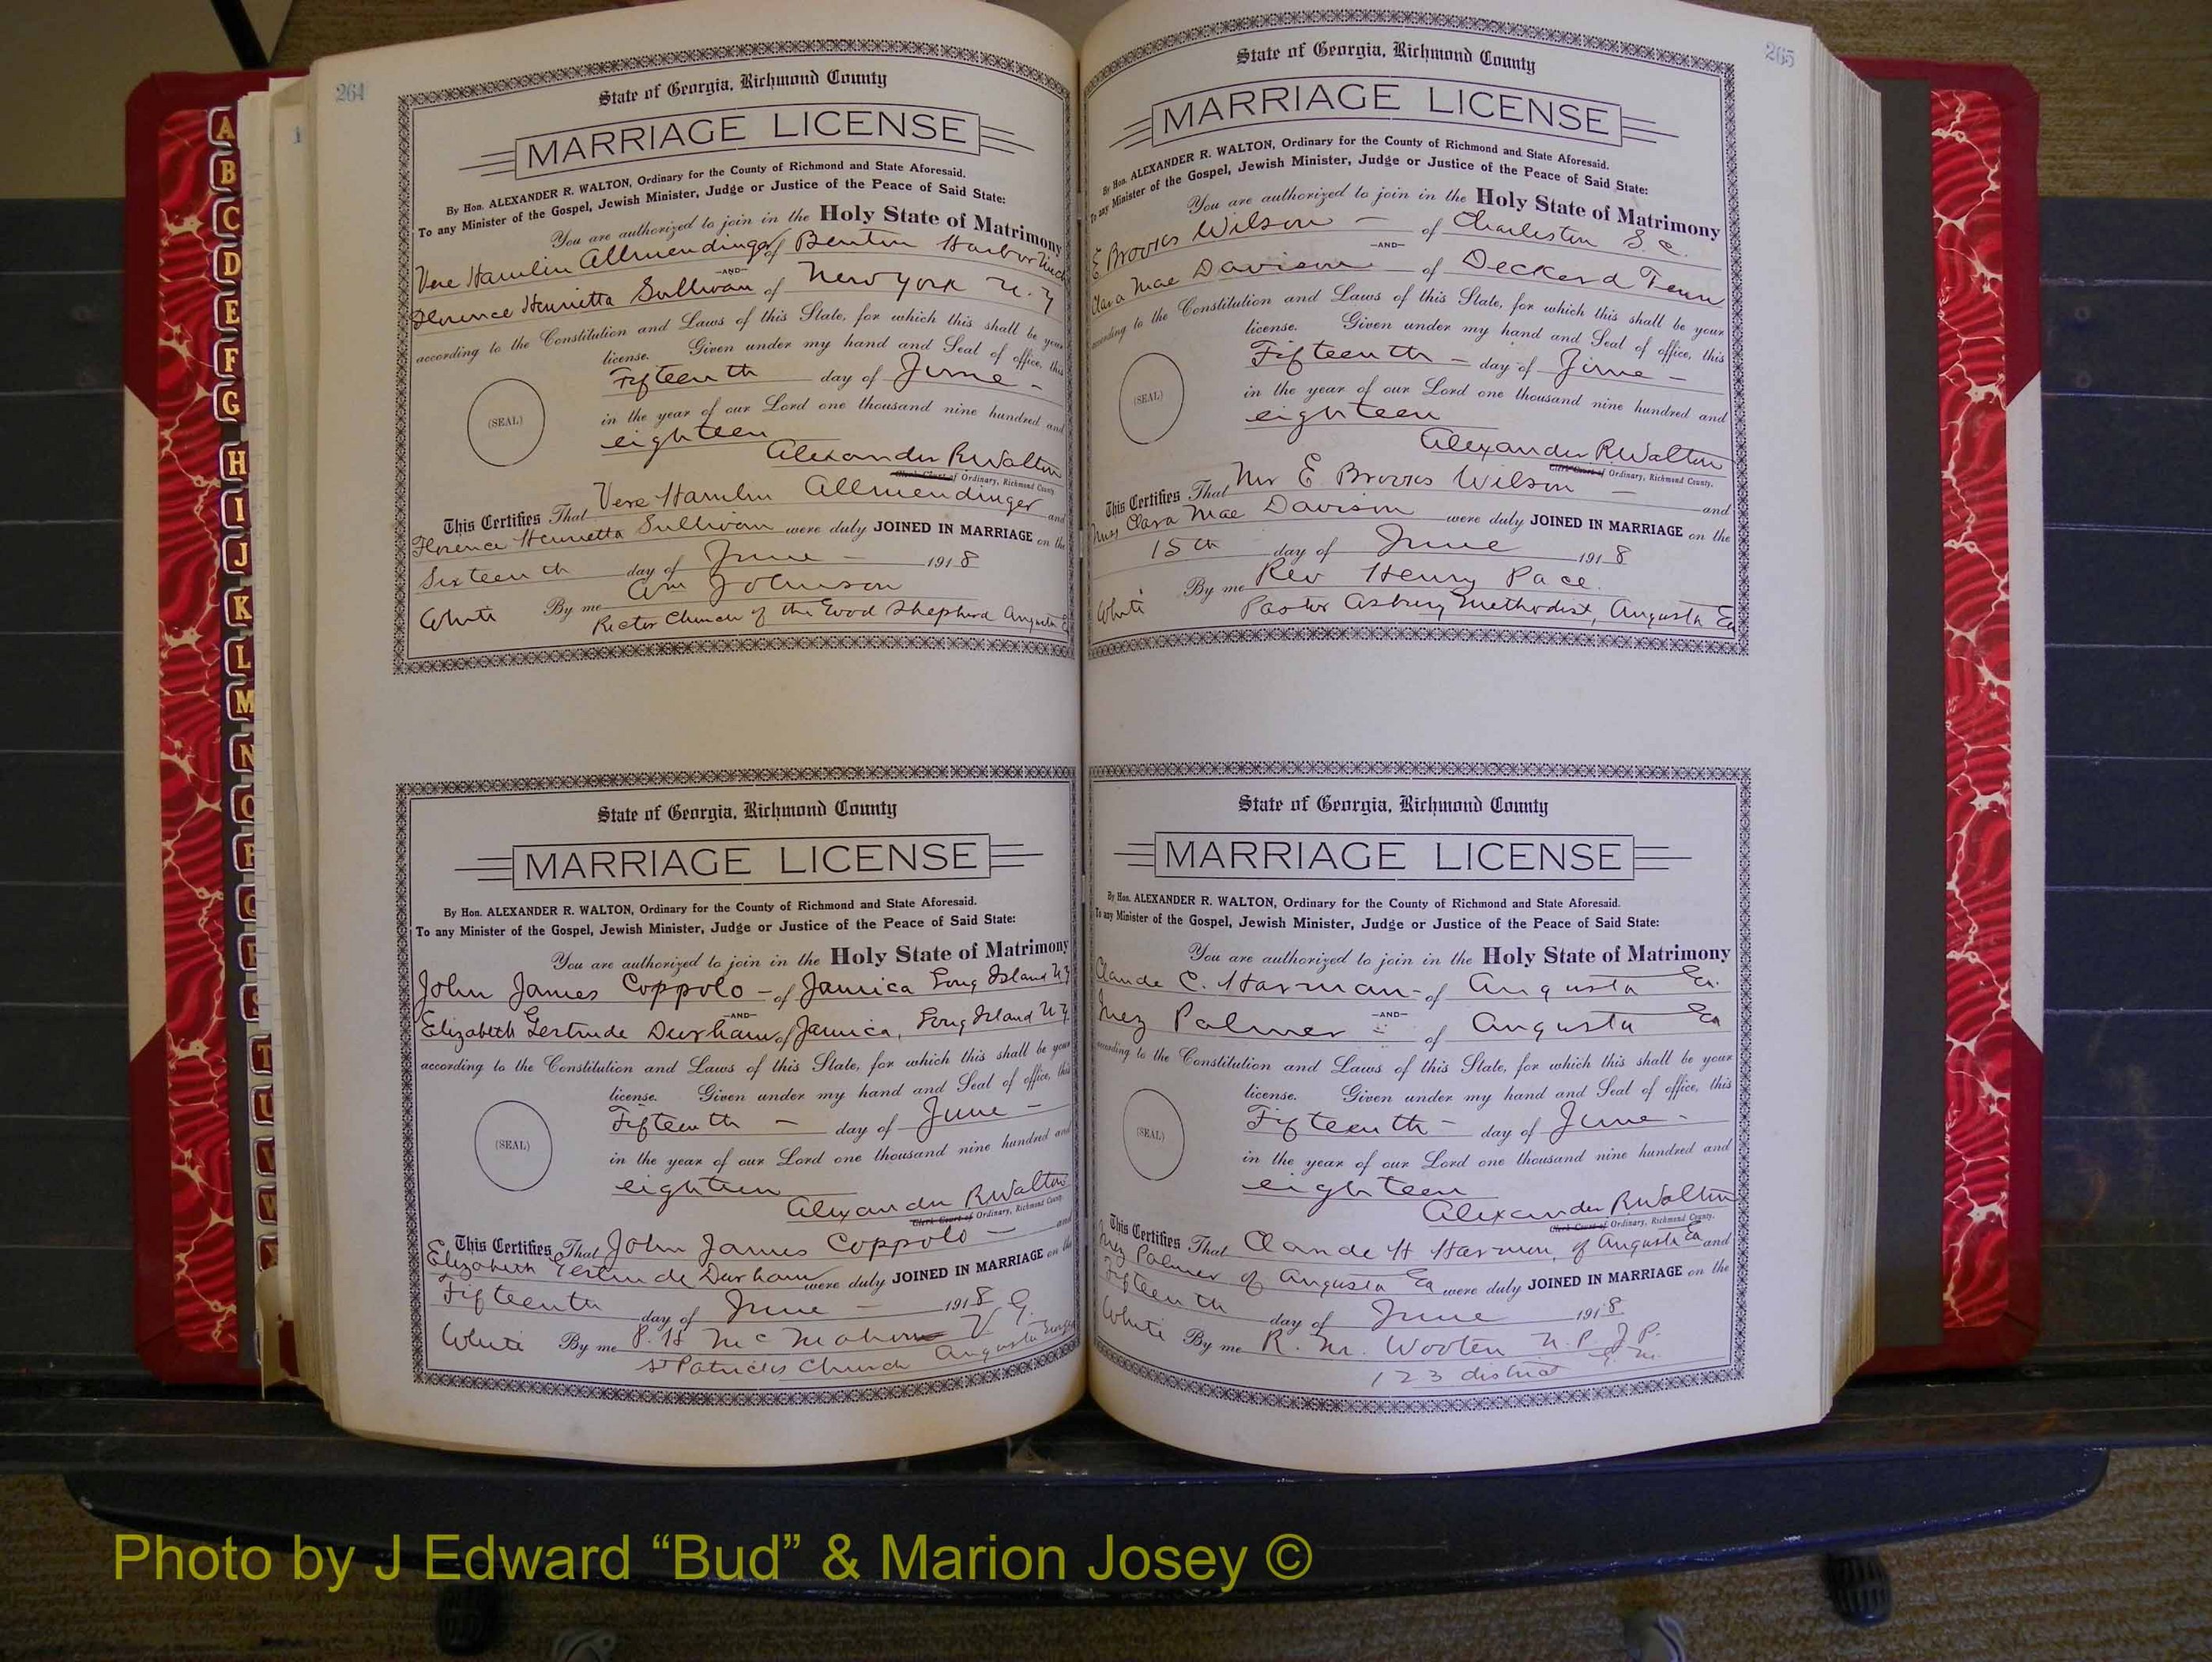 264
State of Georgia, Richmond County
MARRIAGE LICENSE
By Hon. ALEXANDER R. WALTON, Ordinary for the County of Richmond and State Aforesaid.
To any Minister of the Gospel, Jewish Minister, Judge or Justice of the Peace of Said State:
You are authorized to join in the Holy State of Matrimony
Vere Hamlin Allmendinger of Benton Harbor Mich
—AND—
Florence Henrietta Sullivan of New York N.Y
according to the Constitution and Laws of this State, for which this shall be your
license. Given under my hand and Seal of office, this
Fifteenth day of June -
(SEAL)
in the year of our Lord one thousand nine hundred and
eighteen
Alexander R Walton
Clerk Court of Ordinary, Richmond County
This Certifies That Vere Hamlin Allmendinger and
Florence Henrietta Sullivan were duly JOINED IN MARRIAGE on the
Sixteenth day of June - 1918
White By me Wm Johnson
Rector Church of the Good Shepherd Augusta G
State of Georgia, Richmond County
MARRIAGE LICENSE
By Hon. ALEXANDER R. WALTON, Ordinary for the County of Richmond and State Aforesaid.
To any Minister of the Gospel, Jewish Minister, Judge or Justice of the Peace of Said State:
You are authorized to join in the Holy State of Matrimony
John James Coppolo - of Jamica Long Island N.Y
—AND—
Elizabeth Gertrude Durham of Jamica, Long Island N.Y.
according to the Constitution and Laws of this State, for which this shall be your
license. Given under my hand and Seal of office, this
Fifteenth - day of June -
(SEAL)
in the year of our Lord one thousand nine hundred and
eighteen
Alexander R Walton
Clerk Court of Ordinary, Richmond County
This Certifies That John James Coppolo - and
Elizabeth Gertrude Durham were duly JOINED IN MARRIAGE on the
Fifteenth day of June - 1918
White By me P. H McMahon V G.
St Patricks Church Augusta Georgia
265
State of Georgia, Richmond County
MARRIAGE LICENSE
By Hon. ALEXANDER R. WALTON, Ordinary for the County of Richmond and State Aforesaid.
To any Minister of the Gospel, Jewish Minister, Judge or Justice of the Peace of Said State:
You are authorized to join in the Holy State of Matrimony
E Brooks Wilson - of Charleston S. C.
—AND—
Clara Mae Davison of Deckerd Tenn
according to the Constitution and Laws of this State, for which this shall be your
license. Given under my hand and Seal of office, this
Fifteenth - day of June -
(SEAL)
in the year of our Lord one thousand nine hundred and
eighteen
Alexander R Walton
Clerk Court of Ordinary, Richmond County.
This Certifies That Mr E Brooks Wilson - and
Miss Clara Mae Davison were duly JOINED IN MARRIAGE on the
15th day of June 1918
White By me Rev Henry Pace.
Pastor Asbury Methodist, Augusta Ga
State of Georgia, Richmond County
MARRIAGE LICENSE
By Hon. ALEXANDER R. WALTON, Ordinary for the County of Richmond and State Aforesaid.
To any Minister of the Gospel, Jewish Minister, Judge or Justice of the Peace of Said State:
You are authorized to join in the Holy State of Matrimony
Claude C. Harman - of Augusta Ga.
—AND—
Inez Palmer of Augusta Ga
according to the Constitution and Laws of this State, for which this shall be your
license. Given under my hand and Seal of office, this
Fifteenth - day of June -
(SEAL)
in the year of our Lord one thousand nine hundred and
eighteen
Alexander R Walton
Clerk Court of Ordinary, Richmond County.
This Certifies That Claude H Harmon, of Augusta Ga and
Inez Palmer of Augusta Ga were duly JOINED IN MARRIAGE on the
Fifteenth day of June 1918
White By me R. M. Wooten N. P. J P.
123 district G. M.
A
B
C
D
E
F
G
H
I
J
K
L
M
N
O
P
Q
R
S
T
U
W
Photo by J Edward “Bud” & Marion Josey ©